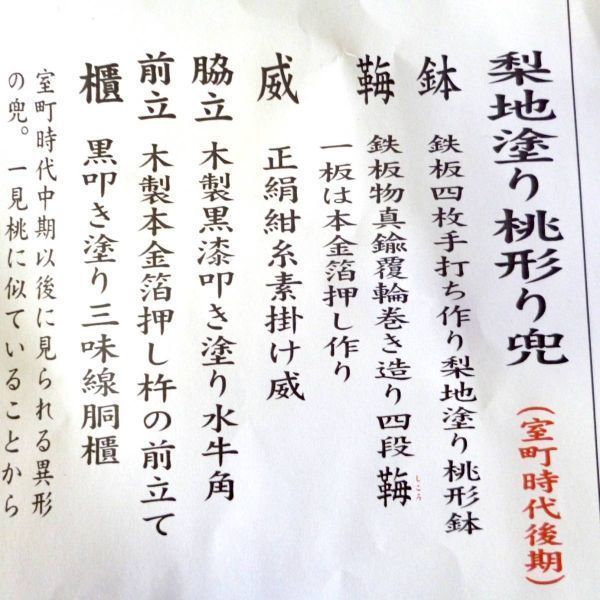 梨地塗り桃形り兜(室町時代後期)
鉢 鉄板四枚手打ち作り梨地塗り桃形鉢
鞴 鉄板物真鍮覆輪巻き造り四段鞴
しころ
一板は本金箔押し作り
威 正絹紺糸素掛け威
脇立 木製黒漆叩き塗り水牛角
前立 木製本金箔押し杵の前立て
櫃 黒叩き塗り三味線胴櫃
室町時代中期以後に見られる異形
の兜。一見桃に似ていることから